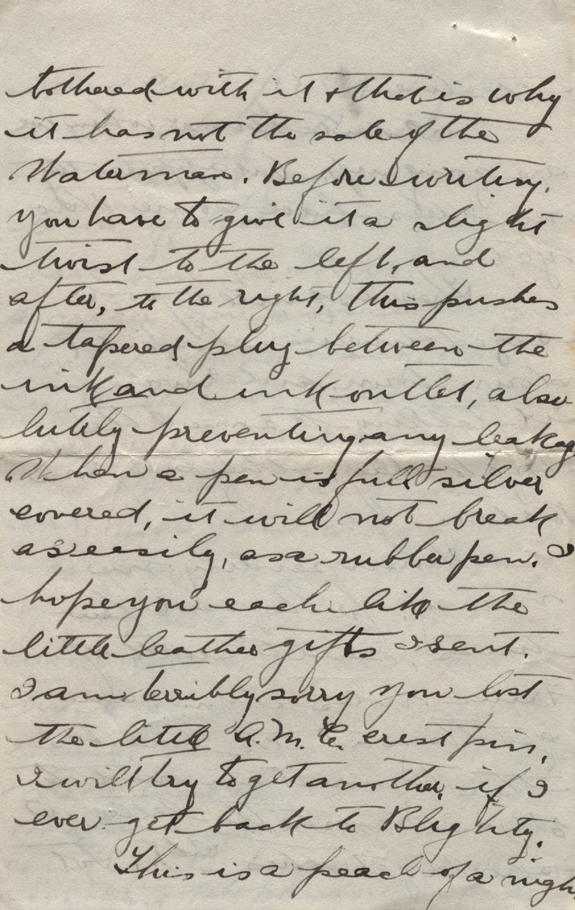 bothered with it & that is why
it has not the sale of the
Waterman. Before writing,
you have to give it a slight
twist to the left, and
after, to the right, this pushes
a tapered plug between the
ink and ink outlet, abso-
lutely preventing any leakage
When a pen is full silver
covered, it will not break
as easily, as a rubber pen. I
hope you each like the
little leather gifts I sent.
I am terribly sorry you lost
the little A.M.C. crest pin,
I will try to get another, if I
ever get back to Blighty.
This is a peach of a nigh